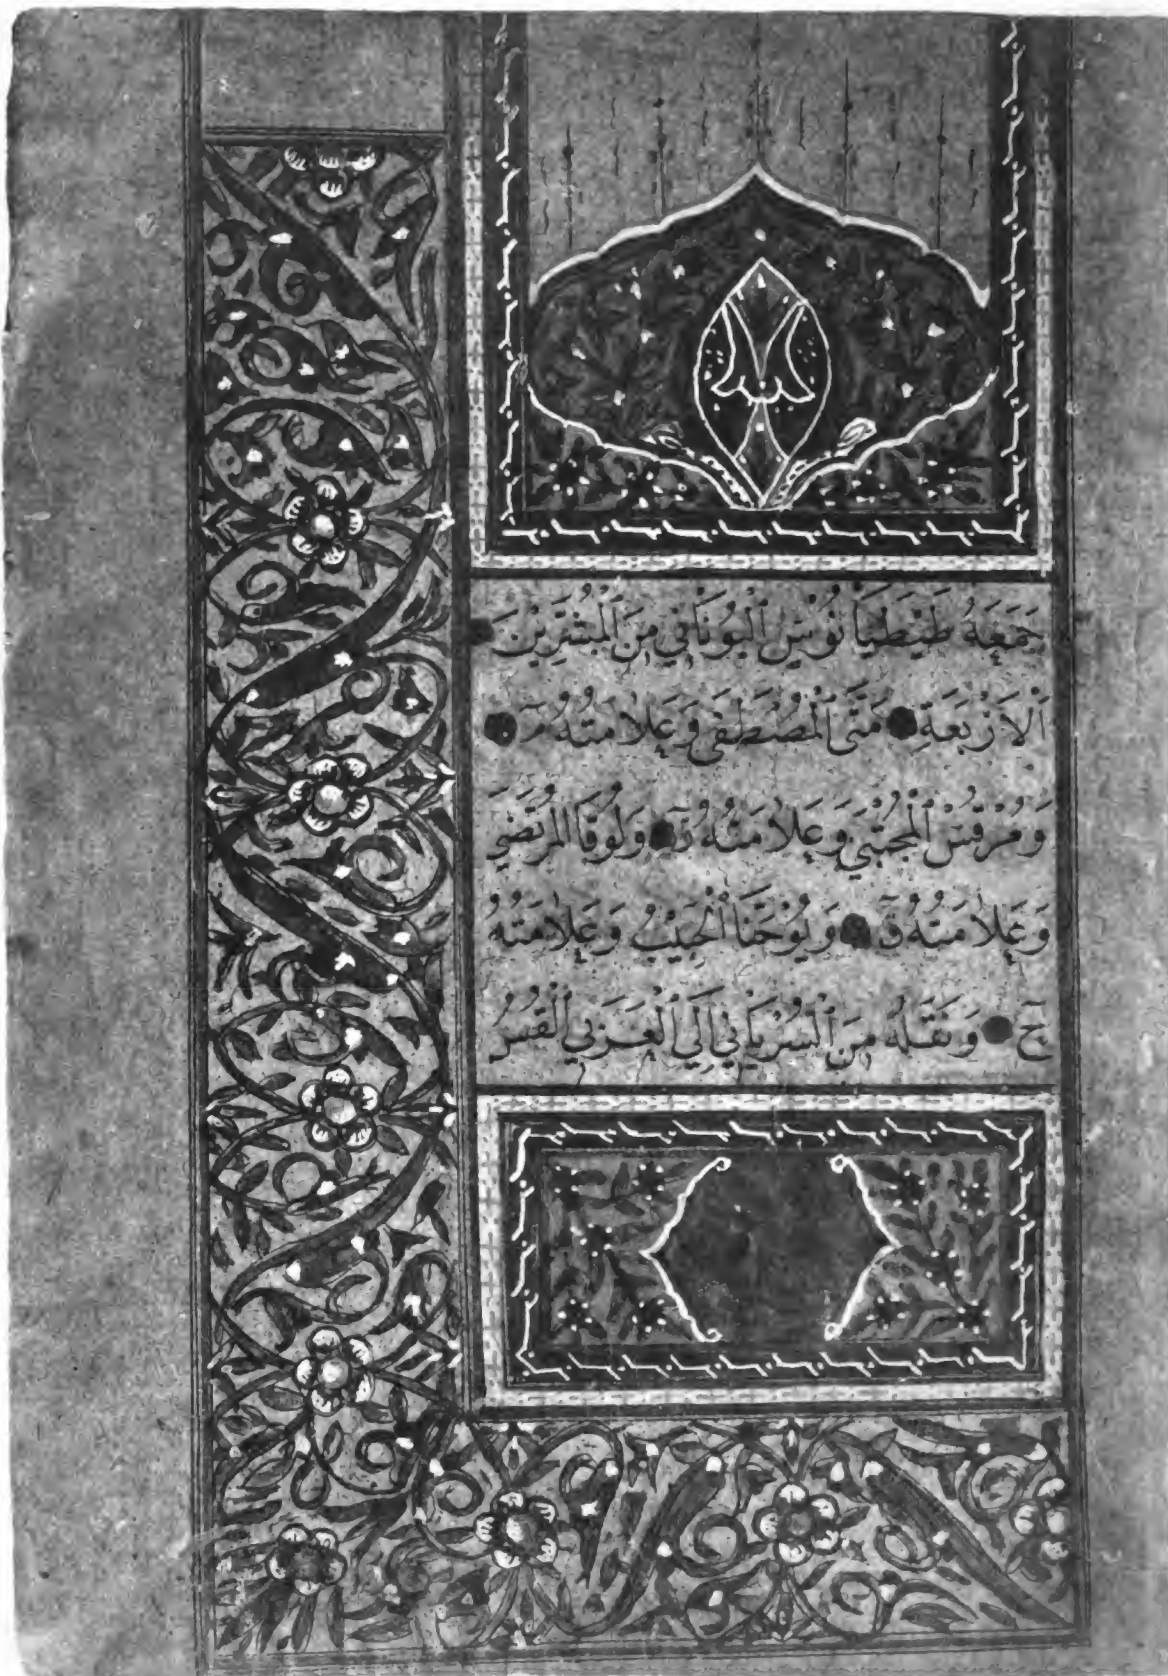 جَمَعَهُ طَيْطِيَانُوسُ ٱلْيُونَانِي مِنَ ٱلْمُبَشِّرِيْنَ
ٱلْاَرْبَعَةِ ● مَتَّى ٱلْمُصْطَفَى وَعَلَامَتُهُ مٓ ●
وَمُرْقُسْ ٱلْمُجْتَبَي وَعَلَامَتُهُ رٓ ● وَلُوقَا ٱلْمُرْتَضَي
وَعَلَامَتُهُ قٓ ● وَيُوْحَنَّا ٱلْحَبِيْبُ وَعَلَامَتُهُ
حٓ ● وَنَقَلَهُ مِنَ ٱلْسُرْيَانِي اِلَي ٱلْعَرَبِي ٱلْقَسُ